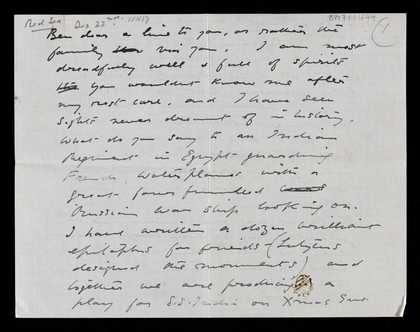 Red Sea Dec 22nd 1917
1
Ben dear a line to you, or rather the
family via you. I am most
dreadfully well & full of spirits
you wouldnt know me after
my rest cure. and I have seen
sights never dreamt of in history.
What do you say to an Indian
Regiment in Egypt guarding
French Waterplanes with a
great four funnelled
Russian War ship looking on.
I have written a dozen brilliant
epitaphs for friends (Lutyens
designed the monuments) and
together we are producing a
play for S.S. India on Xmas Eve.